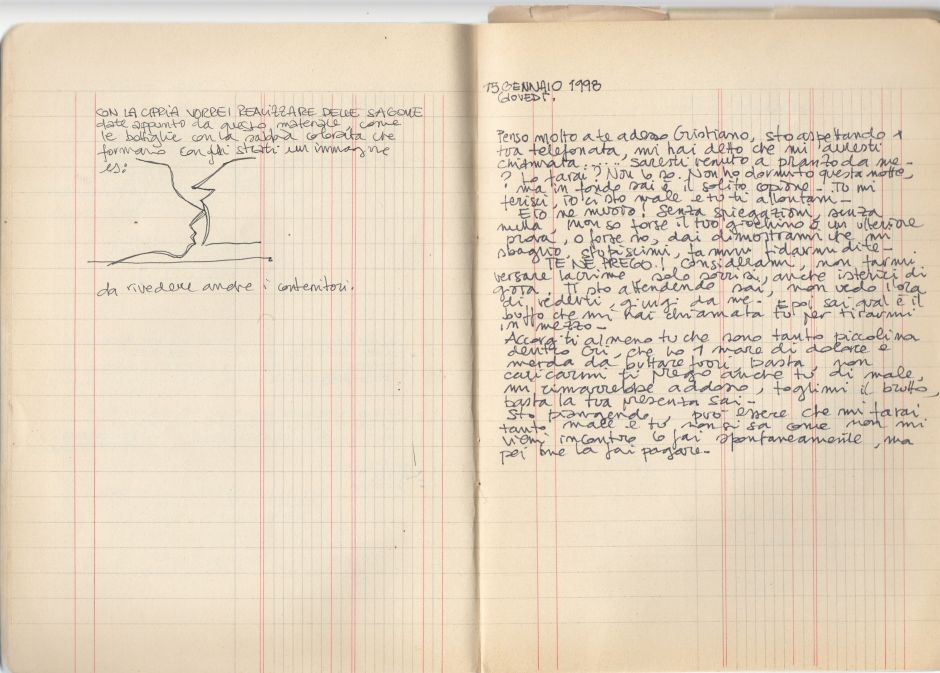 CON LA CIPRIA VORREI REALIZZARE DELLE SAGOME
date appunto da questo materiale come
le bottiglie con la sabbia colorata che
formano con gli strati un immagine
es:
da rivedere anche i contenitori.
15 GENNAIO 1998
GIOVEDÌ.
Penso molto a te adesso Cristiano, sto aspettando 1
tua telefonata, mi hai detto che mi avresti
chiamata ..... saresti venuto a pranzo da me-
? Lo farai? Non lo so. Non ho dormito questa notte,
ma in fondo sai è il solito copione - Tu mi
ferisci, io ci sto male e tu ti allontani -
E io ne muoio! Senza spiegazioni, senza
nulla, non so forse il tuo giochino è un ulteriore
prova, o forse no, dai dimostrami che mi
sbaglio, stupiscimi, fammi fidarmi di te-
TE NE PREGO! Considerami, non farmi
versare lacrime solo sorrisi, anche isterici di
gioia. Ti sto attendendo sai, non vedo l'ora
di vederti, giungi da me. E poi sai qual è il
buffo che mi hai chiamata tu per tirarmi
in mezzo -
Accorgiti almeno tu che sono tanto piccolina
dentro Cri, che ho 1 mare di dolore e
merda da buttare fuori basta, non
caricarmi ti prego anche tu di male,
mi rimarrebbe addosso, toglimi il brutto,
basta la tua presenza sai-
Sto piangendo, può essere che mi farai
tanto male e tu, non si sa come non mi
vieni incontro lo fai spontaneamente, ma
poi me la fai pagare-